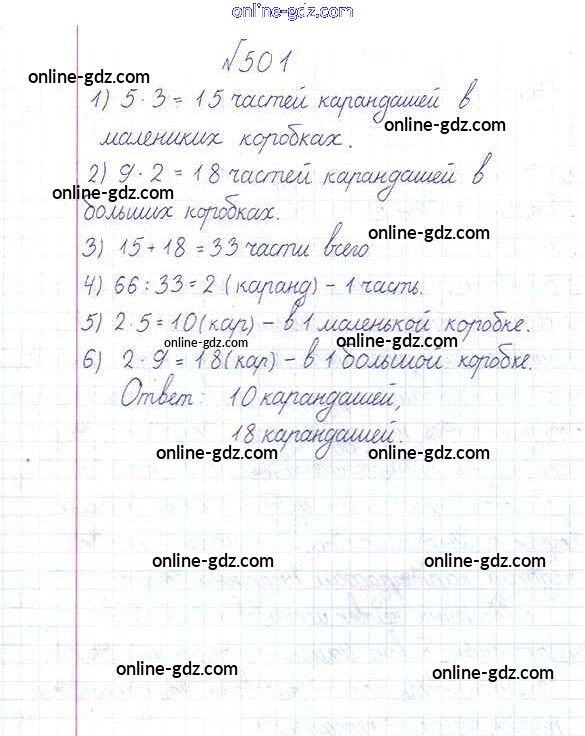 online-gdz.com
№501
online-gdz.com
1) 5·3 = 15 частей карандашей в
online-gdz.com
малениких коробках.
2) 9·2 = 18 частей карандашей в
online-gdz.com
больших коробках.
online-gdz.com
3) 15+18 = 33 части всего
4) 66:33=2 (каранд) - 1 часть.
5) 2·5=10(кар) - в 1 маленькой коробке.
online-gdz.com online-gdz.com
6) 2·9=18(кар) - в 1 большой коробке.
Ответ: 10 карандашей,
18 карандашей.
online-gdz.com online-gdz.com
online-gdz.com online-gdz.com
online-gdz.com online-gdz.com